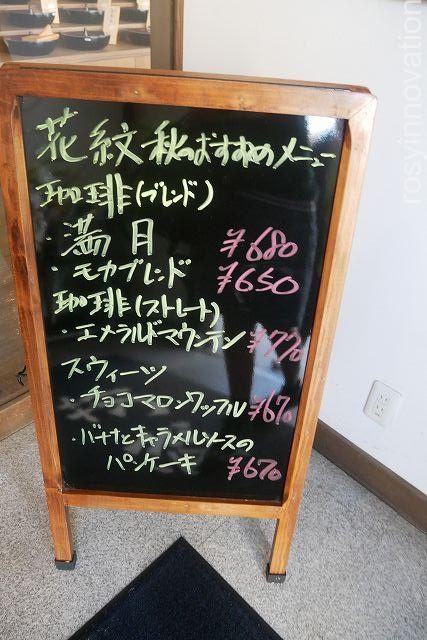 花紋 秋のおすすめメニュー
珈琲(ブレンド)
・満月 ¥680
・モカブレンド ¥650
珈琲(ストレート)
・エメラルドマウンテン ¥770
スウィーツ
・チョコマロンワッフル ¥670
・バナナとキャラメルソースの
パンケーキ ¥670
rosyinnovation